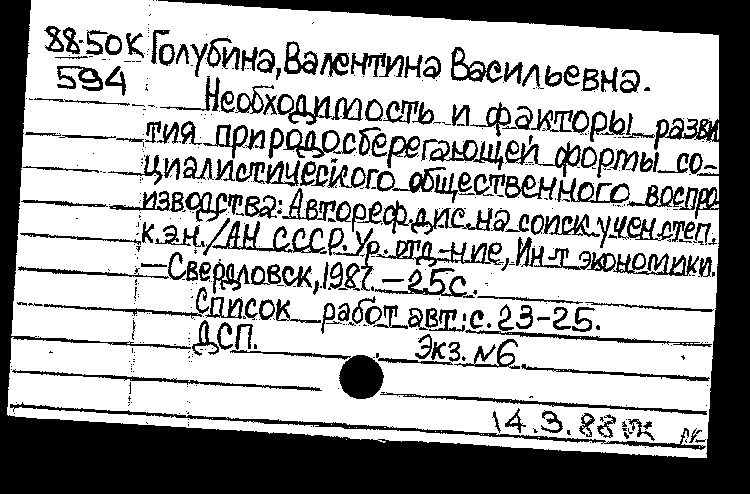 88-50К Голубина, Валентина Васильевна.
594
Необходимость и факторы разви
тия природосберегающей формы со-
циалистического общественного воспро
изводства: Автореф.дис.на соиск.учен.степ.
к.э.н./АН СССР.Ур.отд-ние, Ин-т экономики.
—Свердловск, 1987. —25с.
Список работ авт.: с. 23-25.
ДСП. Экз. №6.
14.3.88